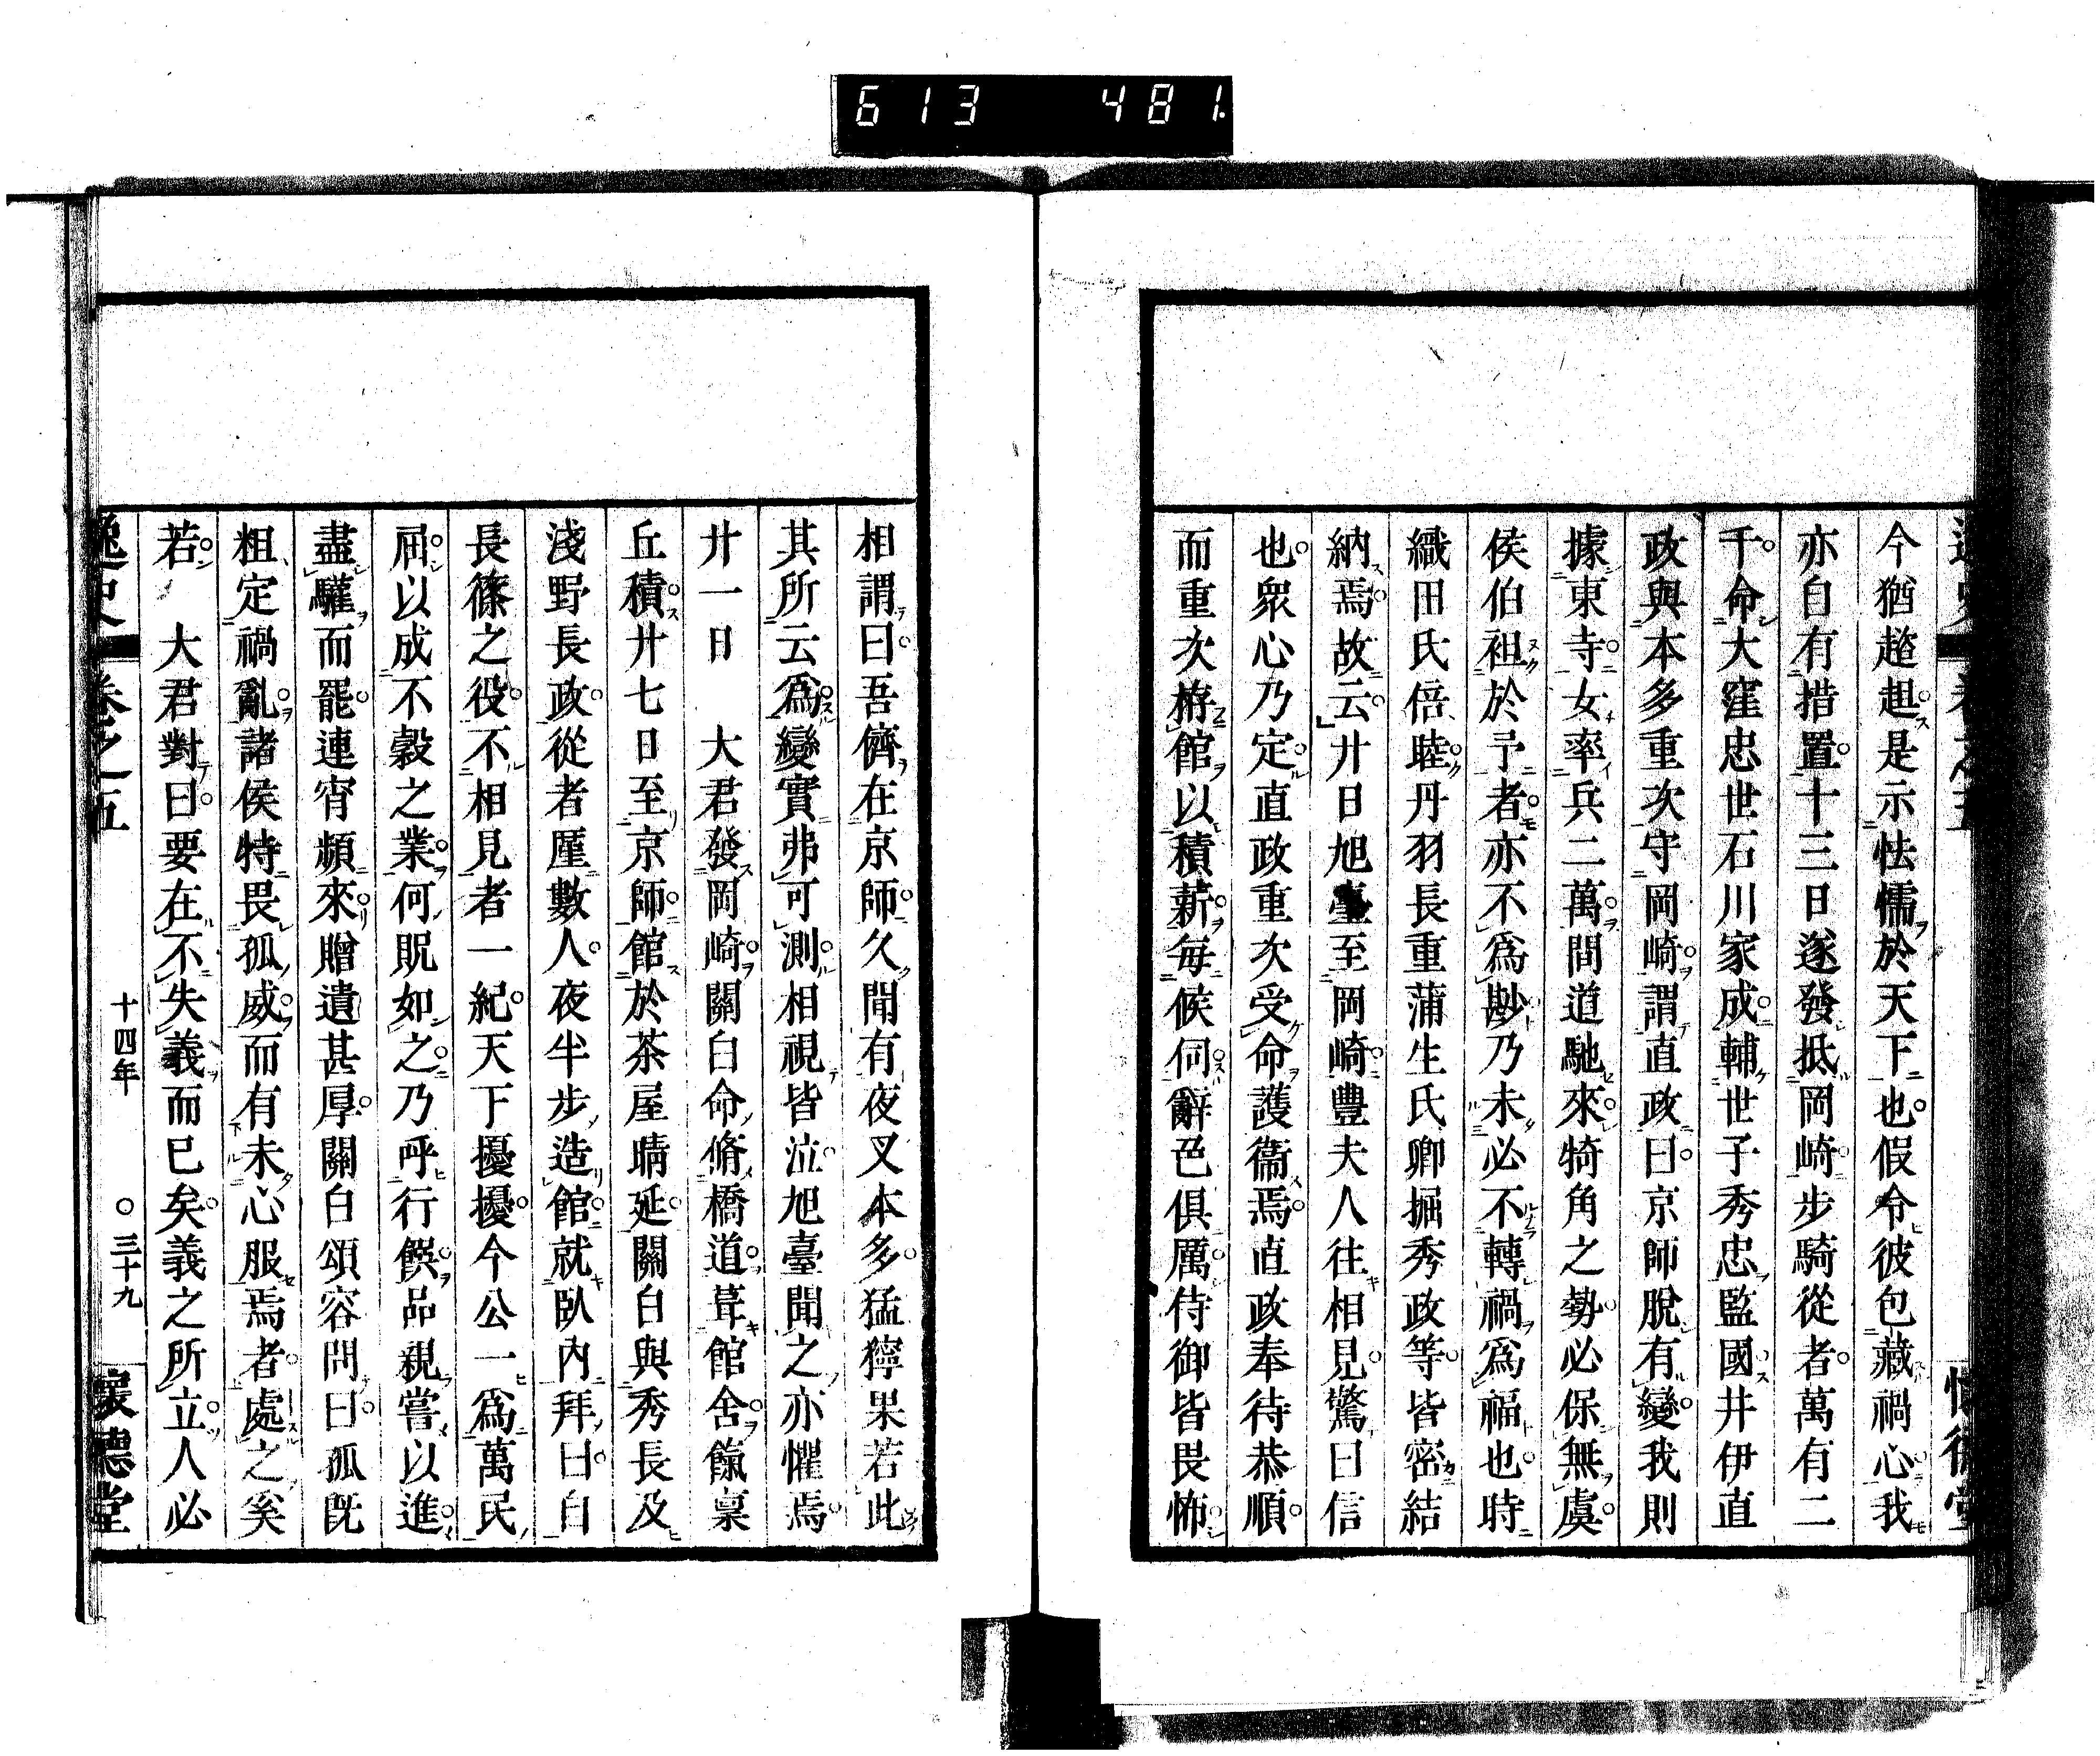 613 481
今猶趦趄是示怯懦於天下也假令彼包藏禍心我
亦自有措置十三日遂發抵岡崎步騎從者萬有二
千命大窪忠世石川家成輔世子秀忠監國井伊直
政與本多重次守岡崎謂直政曰京師脫有變我則
據東寺女率兵二萬間道馳來犄角之勢必保無虞
侯伯袒於予者亦不爲尠乃未必不轉禍爲福也時
織田氏倍睦丹羽長重蒲生氏卿掘秀政等皆密結
納焉故云廿日旭臺至岡崎豐夫人往相見驚曰信
也衆心乃定直政重次受命護衞焉直政奉待恭順
而重次栫館以積薪每候伺辭色俱厲侍御皆畏怖
相謂曰吾儕在京師久聞有夜叉本多猛獰果若此
其所云爲變實弗可測相視皆泣旭臺聞之亦懼焉
廿一日 大君發岡崎關白命脩橋道葺館舍餼稟
丘積廿七日至京師館於茶屋晴延關白與秀長及
淺野長政從者厪數人夜半步造館就臥內拜曰自
長篠之役不相見者一紀天下擾擾今公一爲萬民
屈以成不穀之業何貺如之乃呼行饌品親嘗以進
盡驩而罷連宵頻來贈遺甚厚關白頌容問曰孤旣
粗定禍亂諸侯特畏孤威而有未心服焉者處之奚
若 大君對曰要在不失義而已矣義之所立人必
逸史 卷之五 十四年 〇三十九 懷德堂